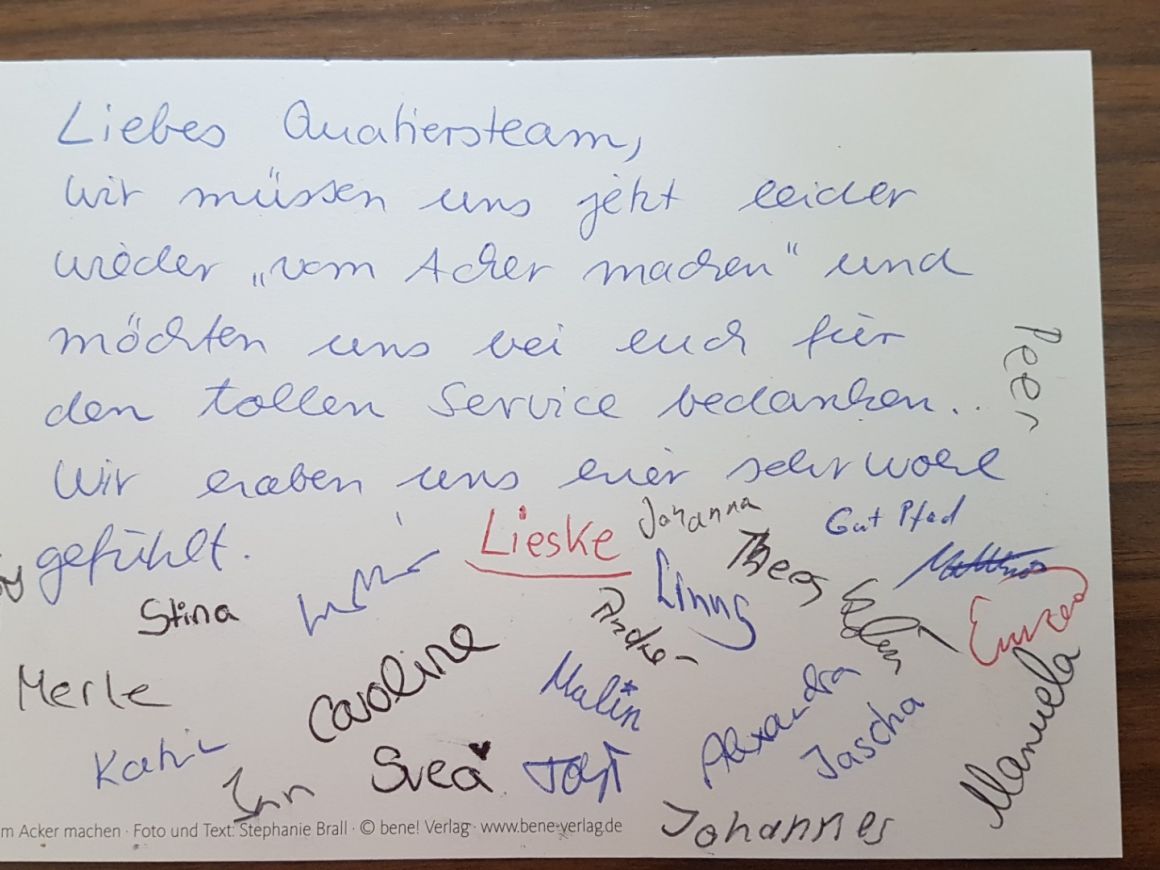 Liebes Quatiersteam,
wir müssen uns jetzt leider
wieder „vom Acker machen" und
möchten uns bei euch für
den tollen Service bedanken..
Wir haben uns hier sehr wohl
gefühlt.
Peer
Lieske
Johanna
Gut Pfad
Thees
Linus
Stina
Merle
Caroline
Malin
Alexandra
Jascha
Manuela
Katrin
Svea
Johannes
m Acker machen · Foto und Text: Stephanie Brall · © bene! Verlag · www.bene-verlag.de